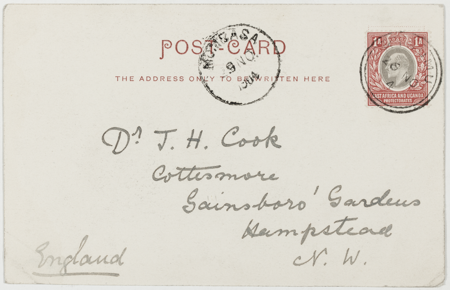 POST CARD
THE ADDRESS ONLY TO BE WRITTEN HERE
MOMBASA
9 NO
1904
EAST AFRICA AND UGANDA
PROTECTORATES
Dr J. H. Cook
Cottesmore
Gainsboro' Gardens
Hampstead
N. W.
England